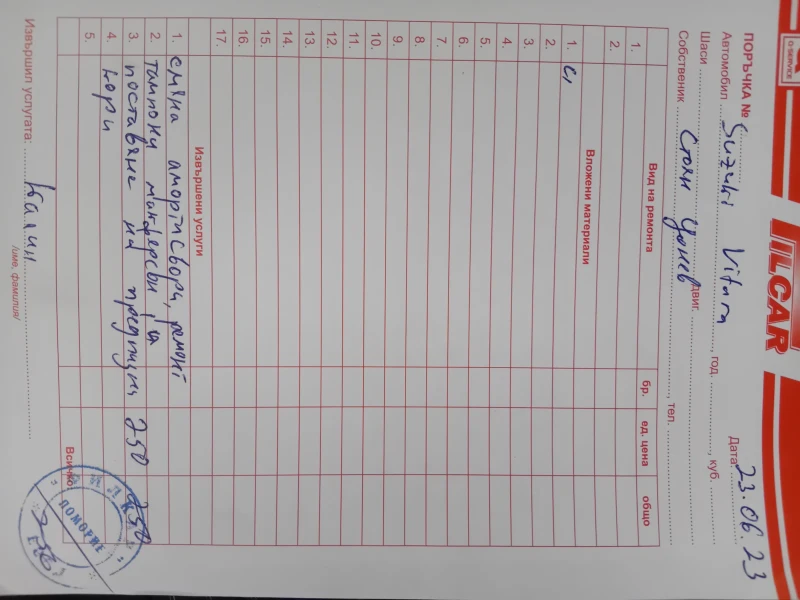 G-SERVICE
TILCAR
ПОРЪЧКА № Дата: 23.06.23
Автомобил Suzuki Vitara, год., куб.
Шаси двиг.
Собственик Стоян Цонев, тел.
Вид на ремонта бр. ед. цена общо
1.
2.
Вложени материали
1.
2.
3.
4.
5.
6.
7.
8.
9.
10.
11.
12.
13.
14.
15.
16.
17.
Извършени услуги
1. смяна амортисьори, ремонт
2. тампони макферсон и
3. поставяне на предпазни 250 250
4. кори
5.
Всичко
Извършил услугата: Калин
/име, фамилия/